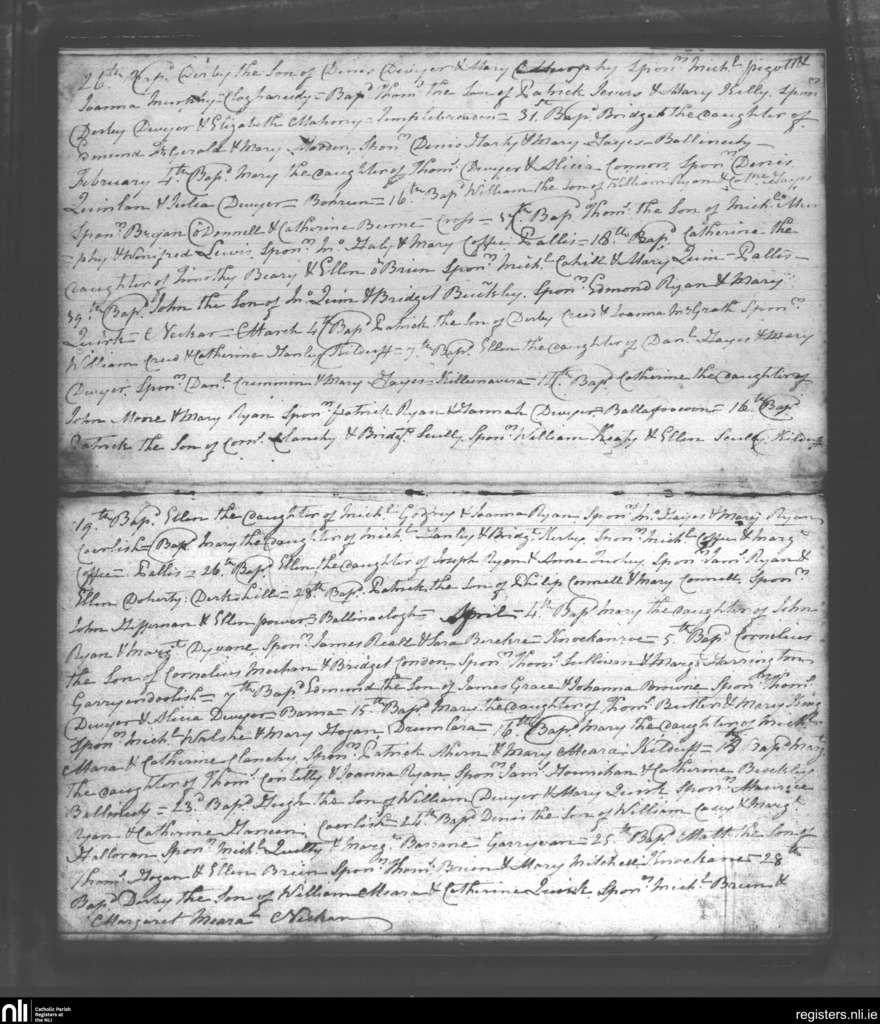 26th Bapd Derby the Son of Denis Dwyer & Mary Sponrs Michl Pigott &
Joanna Murphy - = Bapd Thoms the Son of Patrick & Mary Kelly, Sponrs
Derby Dwyer & Elizabeth Mahony - Templebreaden = 31st Bapd Bridget the daughter of
Edmund & Mary Sponrs Denis & Mary Hayes - Ballinecty -
February 4th Bapd Mary the daughter of Thoms Dwyer & Alicia Connors, Sponrs Denis
Quinlan & Julia Dwyer - = 16th Bapd William the Son of William Ryan & Hayes
Sponrs Bryan ODonnell & Catherine - Cross = Bapd Thoms the Son of Michl Mur
=phy & Winifred Lewis, Sponrs Jno & Mary Coffee Pallis = 18th Bapd Catherine the
daughter of Timothy Beary & Ellen OBrien Sponrs Michl Cahill & Mary Quin - Pallis -
Bapd John the Son of Jno Quin & Bridget Buckley, Sponrs Edmond Ryan & Mary
Quirk = March 4th Bapd Patrick the Son of Derby Creed & Joanna McGrath Sponrs
William Creed & Catherine Hanley Kilduff = 7th Bapd Ellen the daughter of Danl Hayes & Mary
Dwyer, Sponrs Danl Cremmin & Mary Hayes - = Bapd Catherine the daughter of
John Moore & Mary Ryan Sponrs Patrick Ryan & Hannah Dwyer = = 16th Bapd
Patrick the Son of Corns Clanchy & Bridgt Scully Sponrs William & Ellen Scully Kilduff
19th Bapd Ellen the daughter of Michl & Joanna Ryan Sponrs Jno Hayes & Mary Ryan
Caerlish = Bapd Mary the daughter of Michl Hanley & Bridgt Kerby, Sponrs Michl Coffee & Margt
Coffee - Pallis = 26th Bapd Ellen the daughter of Joseph Ryan & Anne Sponrs Jams Ryan &
Ellen Doherty: Derk-hill = 28th Bapd Patrick the Son of Philip Connell & Mary Connell, Sponrs
John Heffernan & Ellen power = = April = 4th Bapd Mary the daughter of John
Ryan & Margt Sponrs James Reall & = Knockanroe = 5th Bapd Cornelius
the Son of Cornelius Meehan & Bridget Condon Sponrs Thoms Sullivan & Margt Harrington
= 7th Bapd Edmund the Son of James Grace & Johanna Browne Sponrs Thoms
Dwyer & Alicia Dwyer = Barna = 15th Bapd Mary the daughter of Thoms Butler & Mary King
Sponrs Michl Walshe & Mary Hogan Drumlara = 16th Bapd Mary the daughter of Michl
Mara & Catherine Clanchy, Sponrs Patrick Ahern & Mary Meara Kilduff = 18 Bapd Margt
The daughter of Thoms & Joanna Ryan, Sponrs Jams Hourihan & Catherine Buckley
Ballinecty = 23d Bapd Hugh the Son of William Dwyer & Mary Quirk Sponrs Maurice
Ryan & Catherine Caerlish = 24th Bapd Denis the Son of William & Margt
Halloran Sponrs Michl Quilty & Margt Garryvan = 25th Bapd Matt the Son of
Thoms Hogan & Ellen Brien Sponrs Thoms Brien & Mary Mitchell Knockane = 28th
Bapd Derby the Son of William Meara & Catherine Quirk, Sponrs Michl Brien &
Margaret Meara
nli
Catholic Parish
Registers at
the NLI
registers.nli.ie